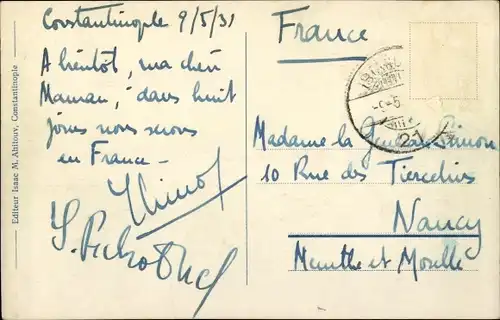 Constantinople 9/5/31
A bientôt, ma chère
Maman, dans huit
jours nous serons
en France -
Editeur Isaac M. Ahitouv, Constantinople
France
-9-5
21
Madame la Général Simon
10 Rue des Tiercelins
Nancy
Meurthe et Moselle